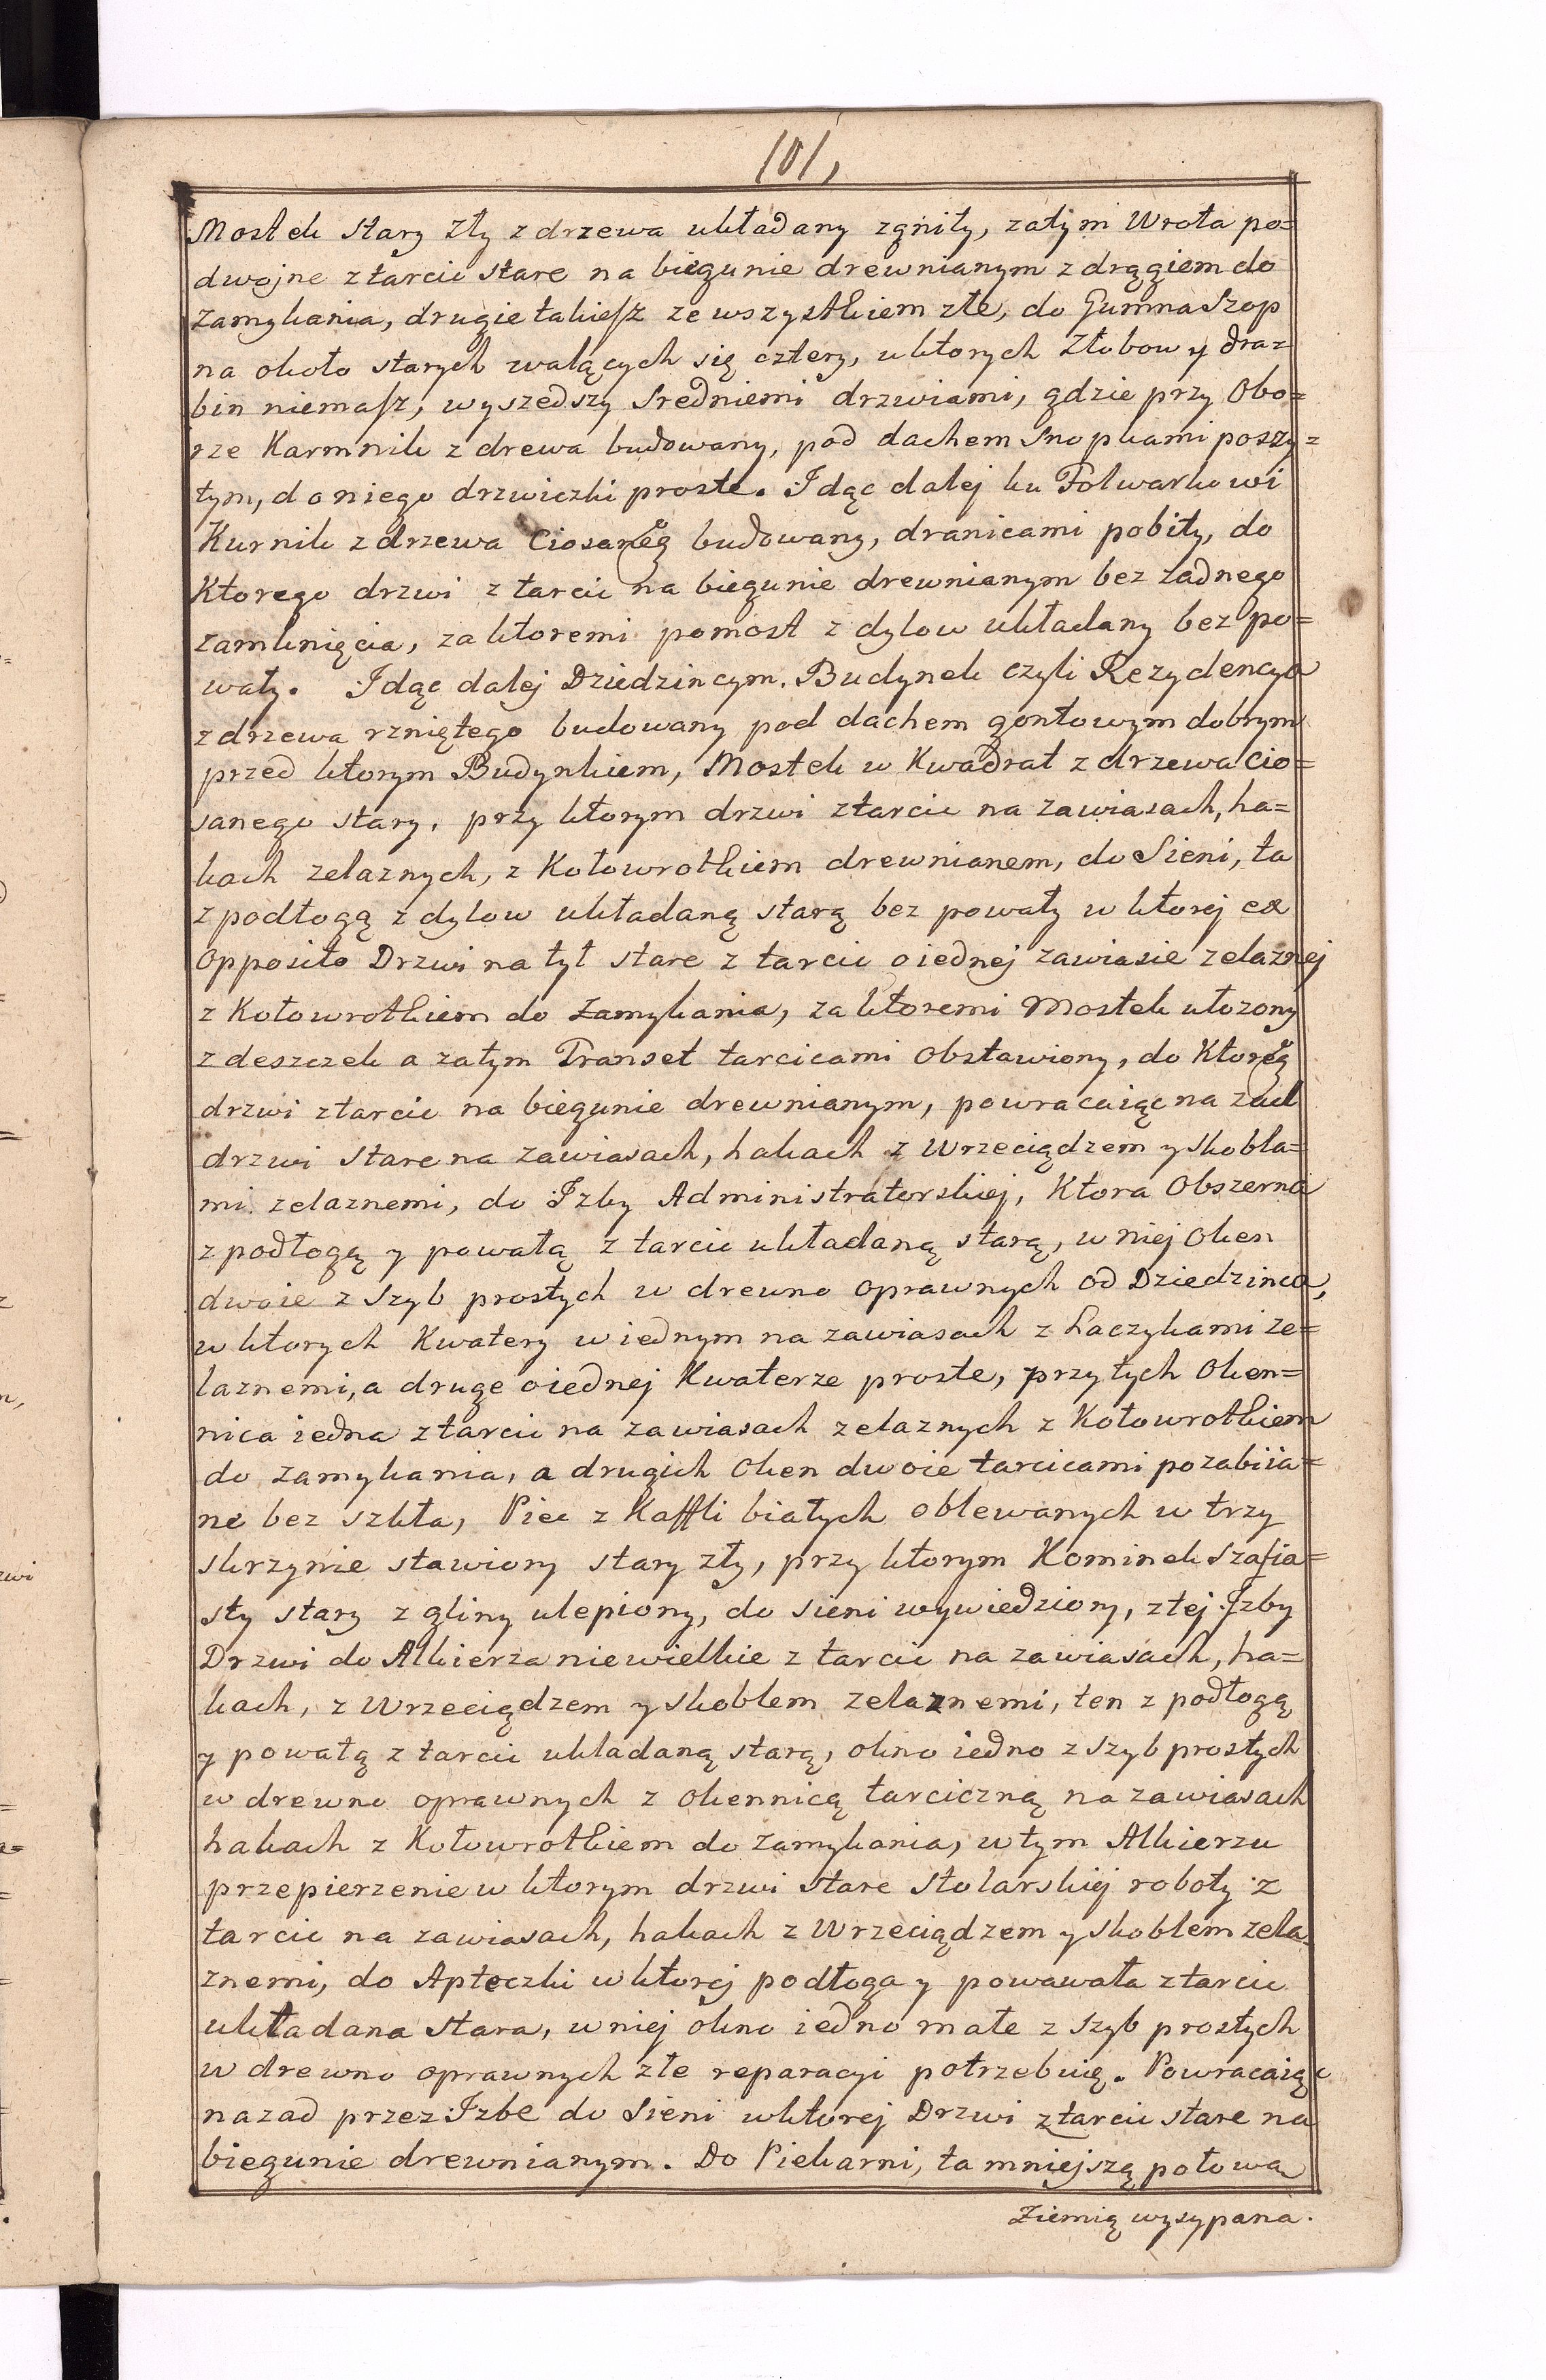 101,
Mostek stary zły z drzewa układany zgniły, zatym Wrota po=
dwojne z tarcic stare na biegunie drewnianym z drągiem do
zamykania, drugie takieſz ze wszystkiem złe, do Gumna Szop
na około starych walących się cztery, w ktorych Złobow y dra=
bin niemaſz, wyszedszy Sredniemi drzwiami, gdzie przy Obo=
rze Karmnik z drewa budowany, pod dachem Snopkami poszy=
tym, do niego drzwiczki proste. Idąc dalej ku Folwarkowi
Kurnik z drzewa Ciosaneg budowany, dranicami pobity, do
Ktorego drzwi z tarcic na biegunie drewnianym bez zadnego
zamknięcia, za ktoremi pomost z dylow układany bez po=
wały. Idąc dalej Dziedzincym. Budynek czyli Rezydencya
z drzewa rzniętego budowany pod dachem gontowym dobrym
przed ktorym Budynkiem, Mostek w Kwadrat z drzewa cio=
sanego stary, przy ktorym drzwi z tarcic na zawiasach, ha=
kach zelaznych, z Kołowrotkiem drewnianem, do Sieni, ta
z podłogą z dylow układaną starą bez powały w ktorej ex
opposito Drzwi na tył stare z tarcic o iednej zawiasie zelaznej
z Kołowrotkiem do zamykania, za ktoremi Mostek ułozony
z deszczek a zatym Transet tarcicami obstawiony, do Ktoreg
drzwi z tarcic na biegunie drewnianym, powracaiąc na zad
drzwi stare na zawiasach, hakach z Wrzeciądzem y skobla=
mi zelaznemi, do Izby Administratorskiej, Ktora Obszerna
z podłogą y powałą z tarcic układaną starą, w niej Oken
dwoie z Szyb prostych w drewno oprawnych od Dziedzinca,
w ktorych Kwatery w iednym na zawiasach z haczykami ze=
laznemi, a druge o iednej Kwaterze proste, przy tych Oken=
nica iedna z tarcic na zawiasach zelaznych z Kołowrotkiem
do zamykania, a drugich Oken dwoie tarcicami pozabiia=
ne bez szkła, Piec z Kaffli białych oblewanych w trzy
skrzynie stawiony stary zły, przy ktorym Kominek szafia=
sty stary z gliny ulepiony, do sieni wywiedziony, z tej Izby
Drzwi do Alkierza niewielkie z tarcic na zawiasach, ha=
kach, z Wrzeciądzem y skoblem zelaznemi, ten z podłogą
y powałą z tarcic układaną starą, okno iedno z szyb prostych
w drewno oprawnych z okennicą tarciczną na zawiasach
hakach z Kołowrotkiem do zamykania, w tym Alkierzu
przepierzenie w ktorym drzwi stare stolarskiej roboty z
tarcic na zawiasach, hakach z Wrzeciądzem y skoblem zela=
znemi, do Apteczki w ktorej podłoga y powawała z tarcic
układana stara, w niej okno iedno małe z szyb prostych
w drewno oprawnych złe reparacyi potrzebuię. Powracaiąc
nazad przez Izbe do Sieni w ktorej Drzwi z tarcic stare na
biegunie drewnianym. Do Piekarni, ta mniejszą połową
Ziemią wysypana.